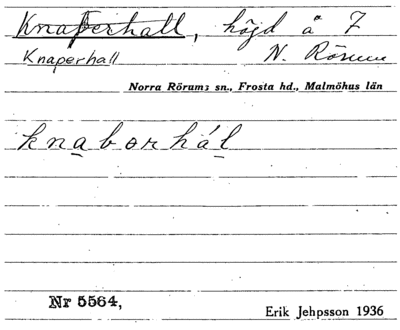 Knaperhall, höjd å 7
Knaperhall N. Rörum
Norra Rörums sn., Frosta hd., Malmöhus län
knaborhál
Nr 5564,
Erik Jehpsson 1936